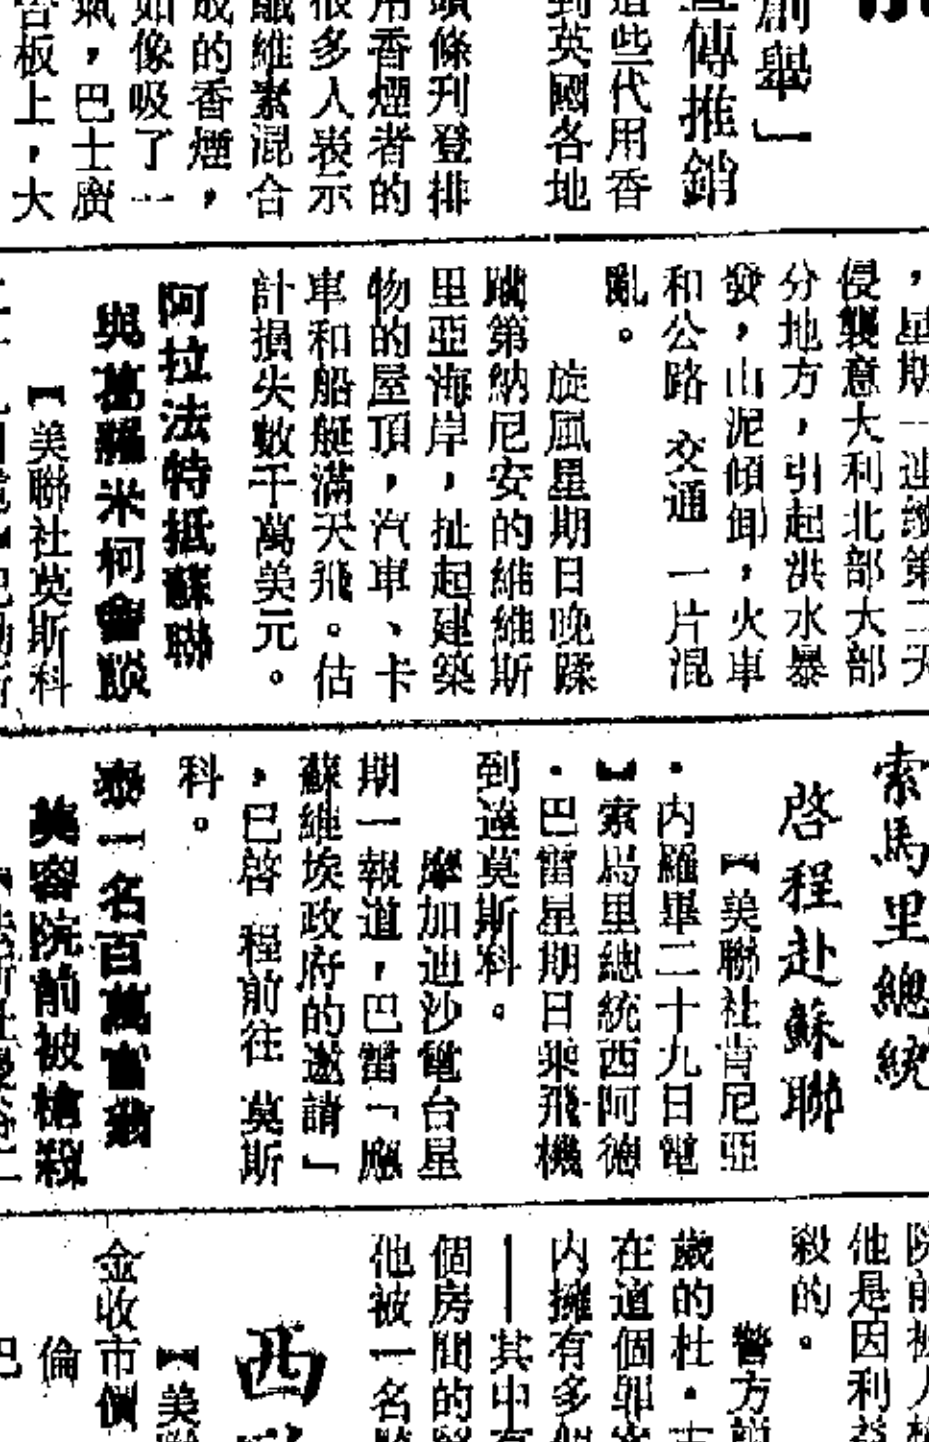 創舉」
宣傳推銷
這些代用香
到英國各地
頭條刋登排
用香煙者的
很多人表示
纖維素混合
成的香煙，
如像吸了一
氣，巴士廣
告板上，大
，星期一連續第二天
侵襲意大利北部大部
分地方，引起洪水暴
發，山泥傾卸，火車
和公路交通一片混
亂。
旋風星期日晚蹂
躪第納尼安的維維斯
里亞海岸，扯起建築
物的屋頂，汽車、卡
車和船艇滿天飛。估
計損失數千萬美元。
阿拉法特抵蘇聯
與葛羅米柯會談
【美聯社莫斯科
索馬里總統
啓程赴蘇聯
【美聯社肯尼亞
・內羅畢二十九日電
】索馬里總統西阿德
・巴雷星期日乘飛機
到達莫斯科。
摩加迪沙電台星
期一報道，巴雷「應
蘇維埃政府的邀請」
，已啓程前往莫斯
科。
泰一名百萬富翁
英容院前被槍殺
院前被人槍
他是因利益
殺的。
警方說
歲的杜・
在這個罪
內擁有多個
——其中有
個房間的
他被一名
西
【美聯
金收市價
倫
巴